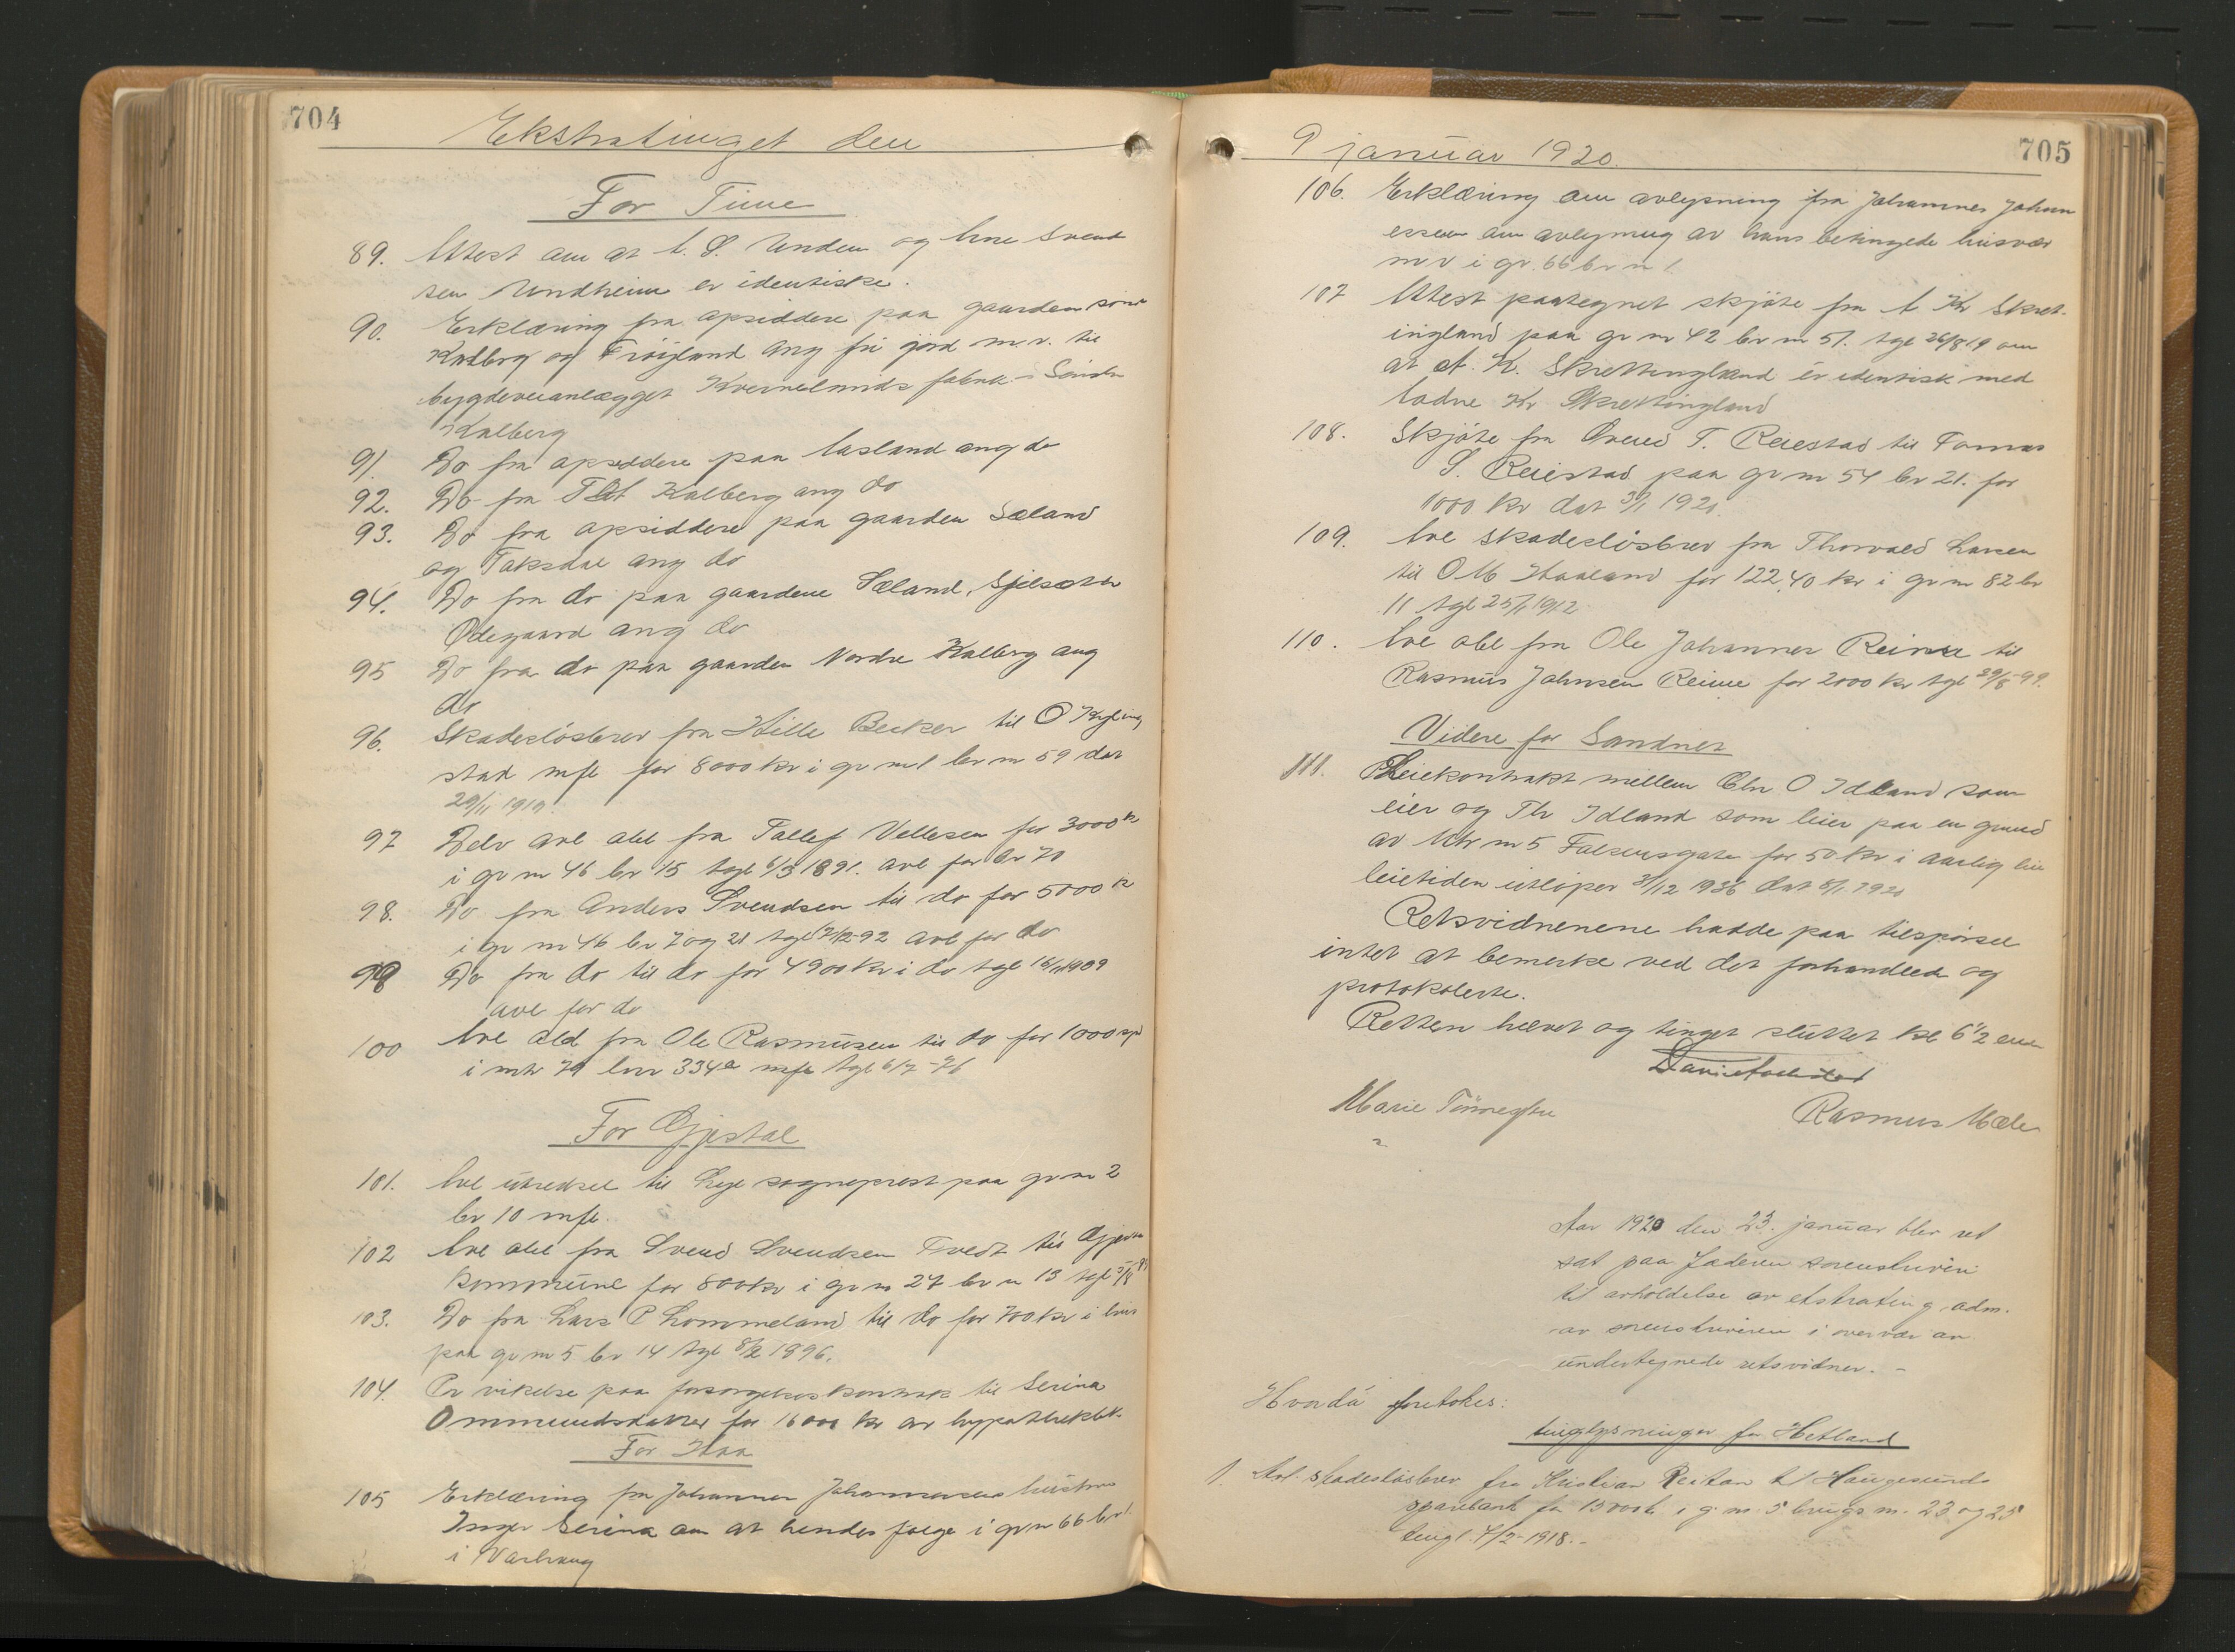 704
Ekstratinget den
For Time
89. Attest om at A. S. Undem og Arne Svend
sen Undheim er identiske.
90. Erklæring fra opsiddere paa gaarden søre
Kalberg og Frøiland ang fri jord m.v. til
bygdeveianlægget Kvernelands fabrik - Søndre
Kalberg
91. Do fra opsiddere paa Aasland ang do
92. Do fra T Kalberg ang do
93. Do fra opsiddere paa gaarden Sæland
og Taksdal ang do
94. Do fra do paa gaardene Sæland, Sjelsæter
Ødegaard ang do
95 Do fra do paa gaarden Nordre Kalberg ang
do
96. Skadesløsbrev fra Hille Becker til O Kyling
stad mfl for 8000 kr i gr nr 1 br nr 59 dat
29/11 1919.
97 Delv avl obl fra Tallef Vellesen for 3000 kr
i gr nr 46 br 45 tgl 6/3 1891. avl for br 70
98. Do fra Anders Svendsen til do for 5000 kr
i gr nr 46 br 7 og 21 tgl 17/12-92 avl for do
99 Do fra do til do for 4900 kr i do tgl 16/11 1909
avl for do
100 Avl obl fra Ole Rasmusen til do for 1000 spd
i mtr 71 lnr 334a mfl tgl 6/7-76
For Gjestal
101. Avl utredsel til Lye sogneprest paa gr nr 2
br 10 mfl.
102 Avl obl fra Svend Svendsen Tvedt til Gjestal
kommune for 800 kr i gr nr 27 br nr 13 tgl 5/8
103. Do fra Lars P Lommeland til do for 700 kr i hus
paa gr nr 5 br 14 tgl 8/2 1896.
104. Pr vikelse paa forsorgelseskontrakt til Serina
Ommundsdatter for 16000 kr av hypothekbk.
For Haa
105 Erklæring fra Johannes Johannesens hustru
Inger Serina om at hendes følge i gr nr 66 br 1
i Varhaug
9 januar 1920.
705
106. Erklæring om avlysning fra Johannes Johann
essen om avlysning av hans betingede husvær
m v i gr. 66 br nr 1
107 Attest paategnet skjøte fra A. Kr Skret-
ingland paa gr nr 42 br nr 51. tgl 26/8 19 om
at A. K. Skrettingland er identisk med
Aadne Kr Skrettingland
108. Skjøte fra Svend T. Reiestad til Tomas
S. Reiestad paa gr nr 54 br 21. for
1000 kr dat 3/1 1920.
109. Avl skadesløsbrev fra Thorvald Larsen
til O M Haaland for 122,40 kr i gr nr 82 br
11 tgl 25/1 1912
110. Avl obl fra Ole Johannes Reime til
Rasmus Johnsen Reime for 2000 kr tgl 29/8-99.
Videre for Sandnes
111. Leiekontrakt mellem Chr O Idland som
eier og Th Idland som leier paa en grund
av Mtr nr 5 Falsensgate for 50 kr i aarlig leie
leietiden utløper 31/12 1936 dat 8/1 1920
Retsvidnenene hadde paa tilspørsel
intet at bemerke ved det forhandlede og
protokolerte.
Retten hævet og tinget sluttet kl 6 1/2 em
Marie Tønnesen
Rasmus Mæle
"
Aar 1920 den 23. januar blev ret
sat paa Jæderen sorenskriveri
til avholdelse av ekstrating, adm.
av sorenskriveren i overvær av
undertegnede retsvidner. -
Hvorda foretokes:
tinglysninger for Hetland
1. Avl. skadesløsbrev fra Kristian Reitan til Haugesunds
sparebank for 15000 k i g. nr. 5 brugs nr. 23 og 25
tingl. 4/2-1918. -